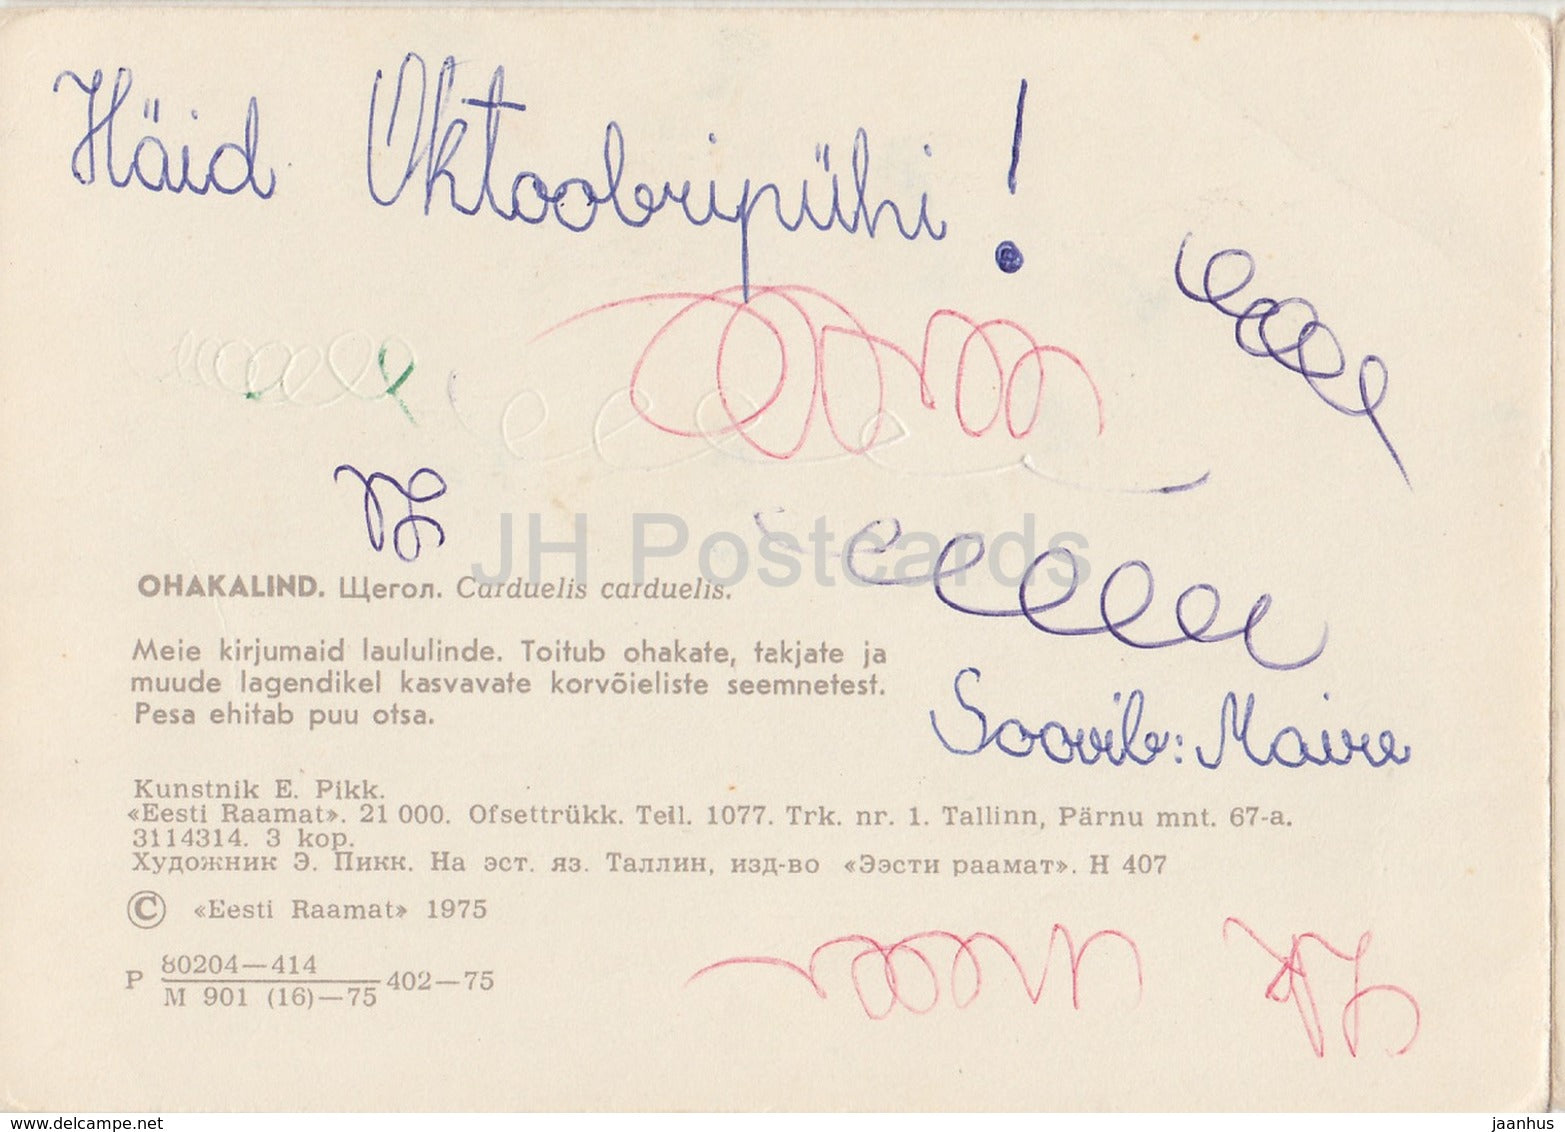 Häid Oktoobripühi!
JH Postcards
OHAKALIND. Щегол. Carduelis carduelis.
Meie kirjumaid laululinde. Toitub ohakate, takjate ja
muude lagendikel kasvavate korvõieliste seemnetest.
Pesa ehitab puu otsa.
Soovib: Maire
Kunstnik E. Pikk.
«Eesti Raamat». 21 000. Ofsettrükk. Tell. 1077. Trk. nr. 1. Tallinn, Pärnu mnt. 67-a.
3114314. 3 kop.
Художник Э. Пикк. На эст. яз. Таллин, изд-во «Ээсти раамат». Н 407
© «Eesti Raamat» 1975
P 80204—414
M 901 (16)—75 402—75
www.delcampe.net
jaanhus